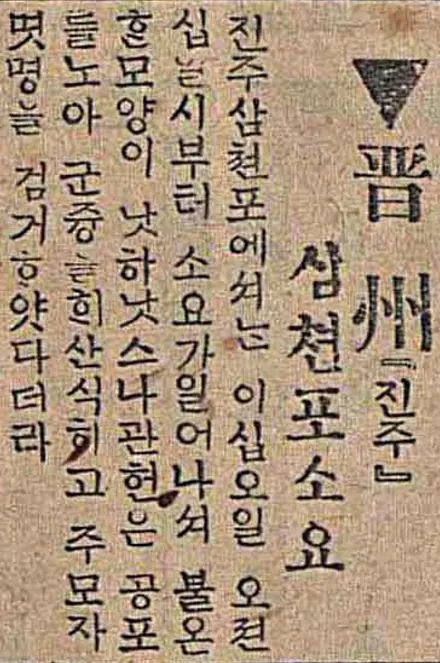 ▼晋州『진주』
삼쳔포소요
진주삼쳔포에셔는 이십오일 오젼
십일시부터 소요가일어나셔 불온
ᄒᆞᆯ모양이 낫하낫스나관헌은 공포
를노아 군즁을희산식히고 주모자
몃명을 검거ᄒᆞ얏다더라